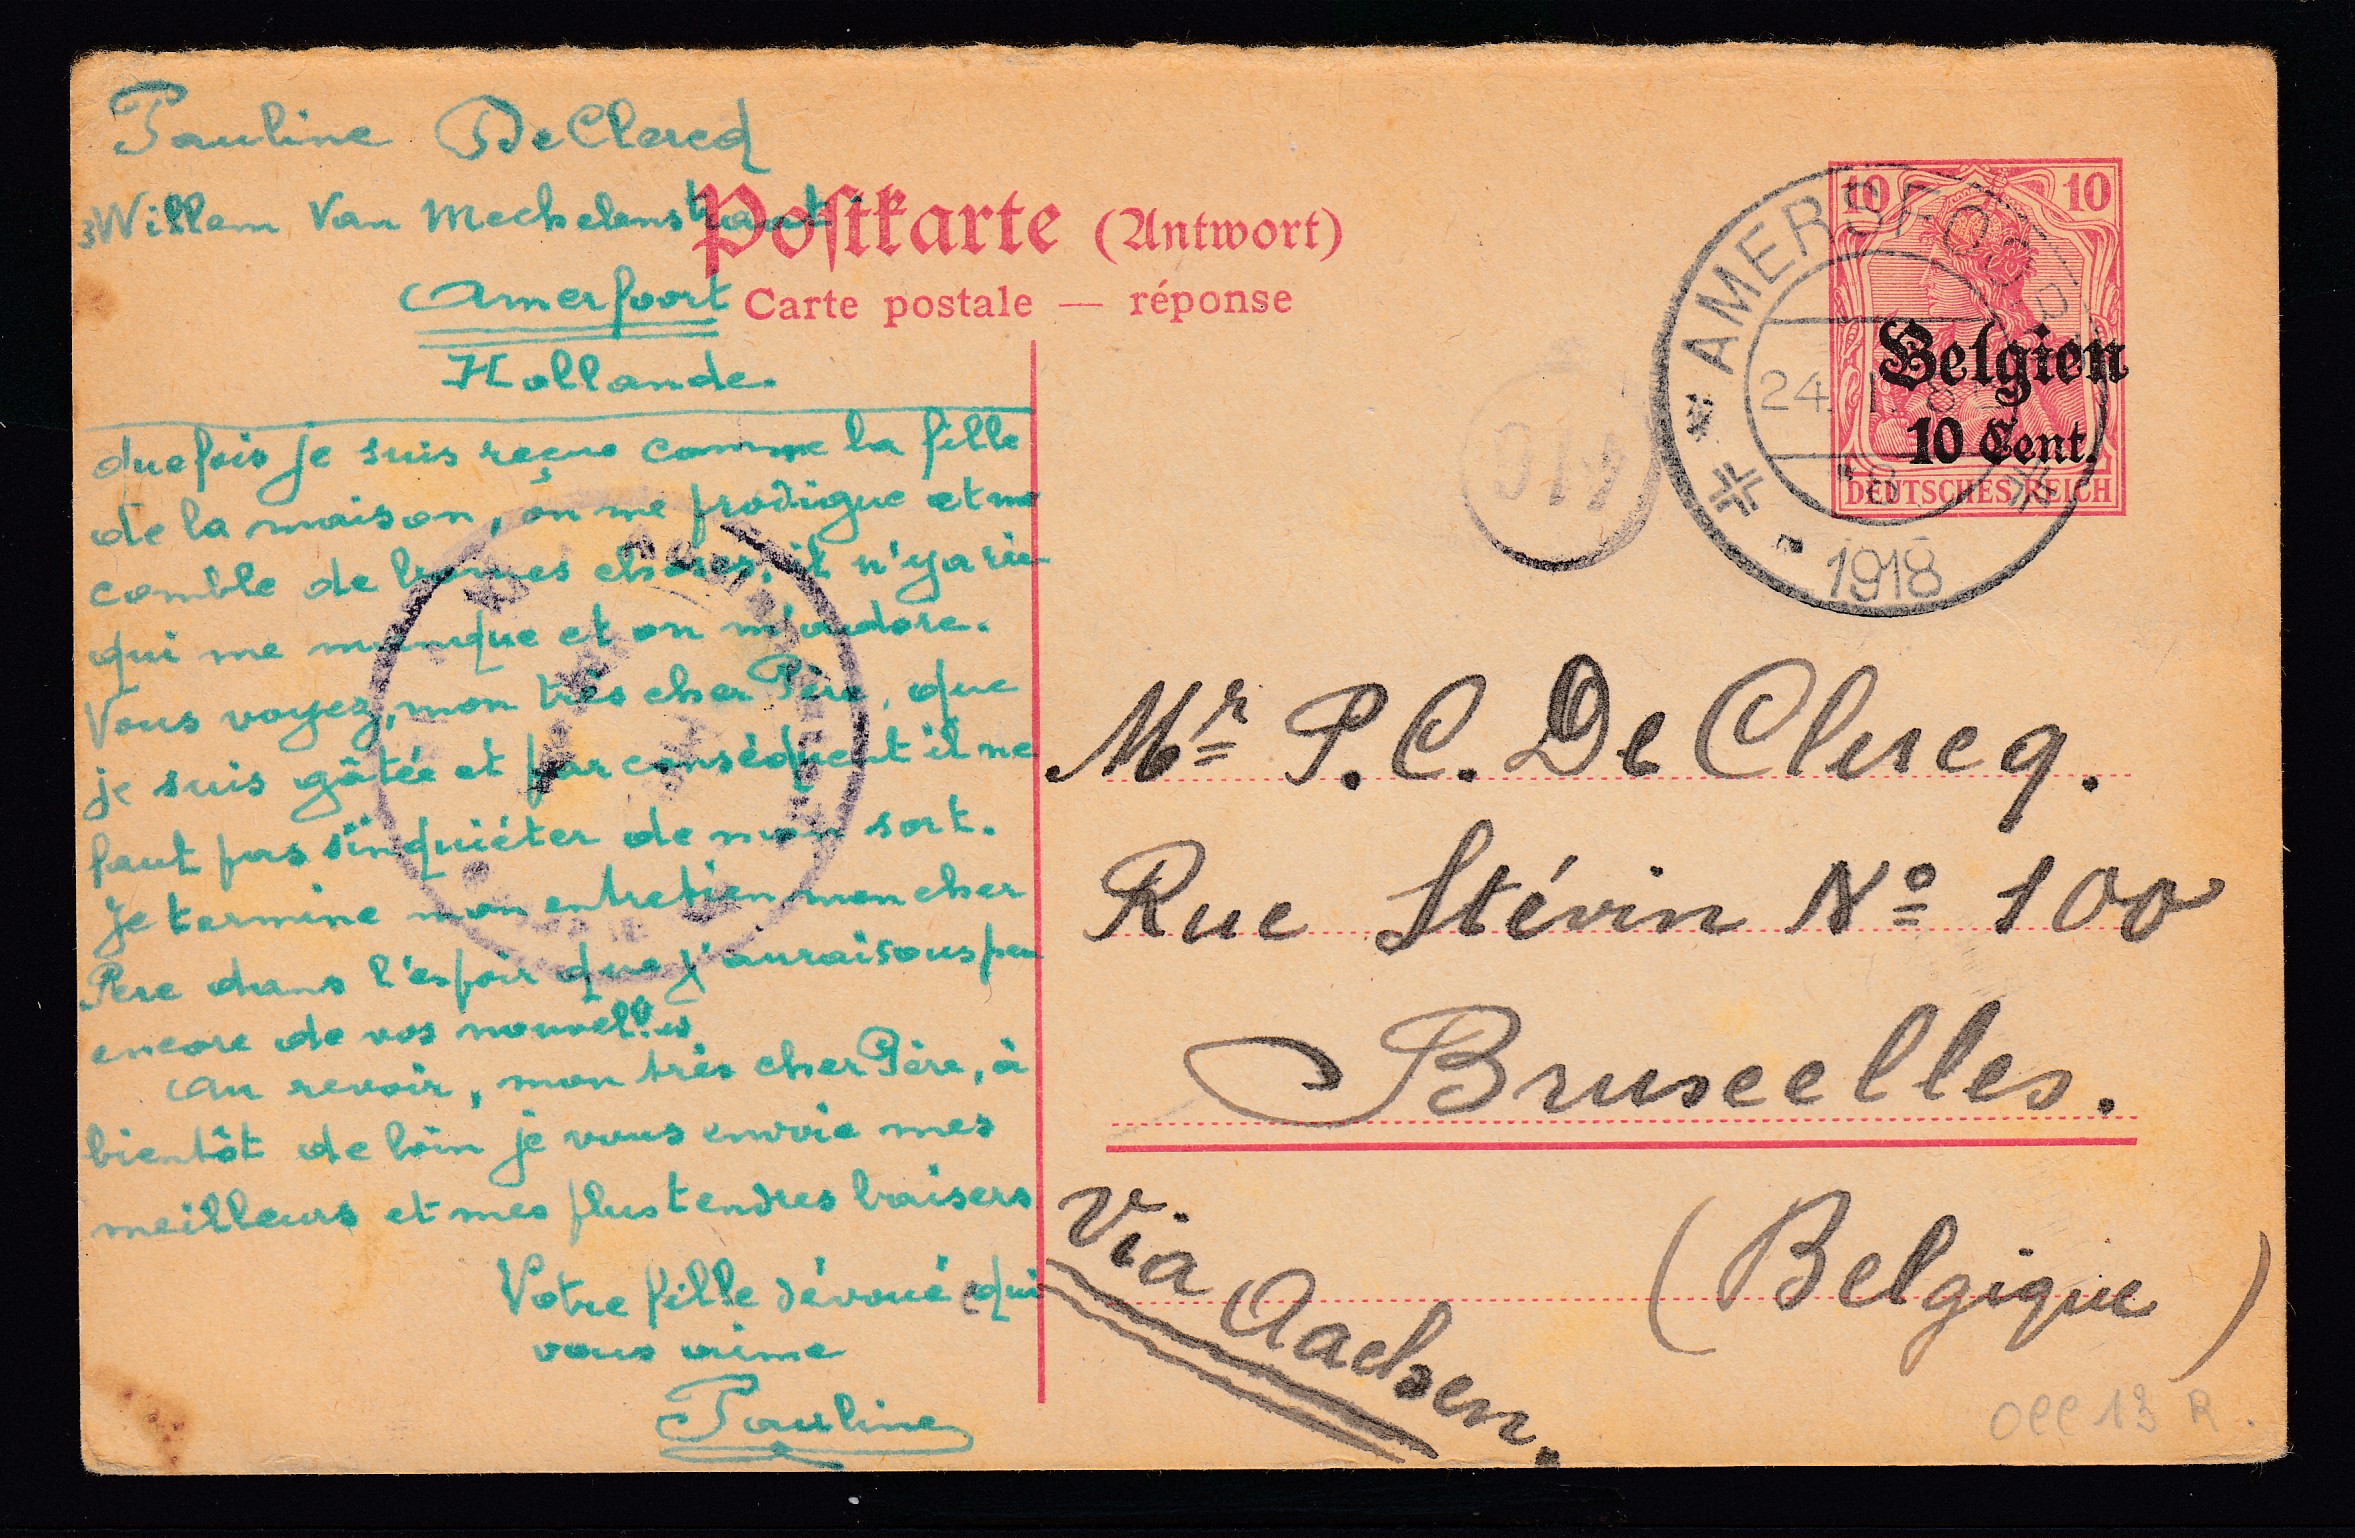 Pauline DeClercq
3 Willem Van Mechelenstraat
Amerfoort
Hollande.
Postkarte (Antwort)
Carte postale — réponse
10 10
Belgien
10 Cent.
DEUTSCHES REICH
AMERSFOORT
24.
1918
duefois je suis reçue comme la fille
de la maison, on me prodigue et me
comble de bonnes choses, il n'ya rien
qui me manque et on m'adore.
Vous voyez, mon très cher Père, que
je suis gâtée et par conséquent il ne
faut pas s'inquiéter de mon sort.
Je termine mon entretien mon cher
Père dans l'espoir que j'aurai sous peu
encore de vos nouvelles
Au revoir, mon très cher Père, à
bientôt de loin je vous envoie mes
meilleurs et mes plus tendres baisers
Votre fille dévoué qui
vous aime
Pauline
Mr P. C. De Clercq.
Rue Stévin No 100
Bruxelles.
(Belgique)
Via Aachen.
OCC 13 R.